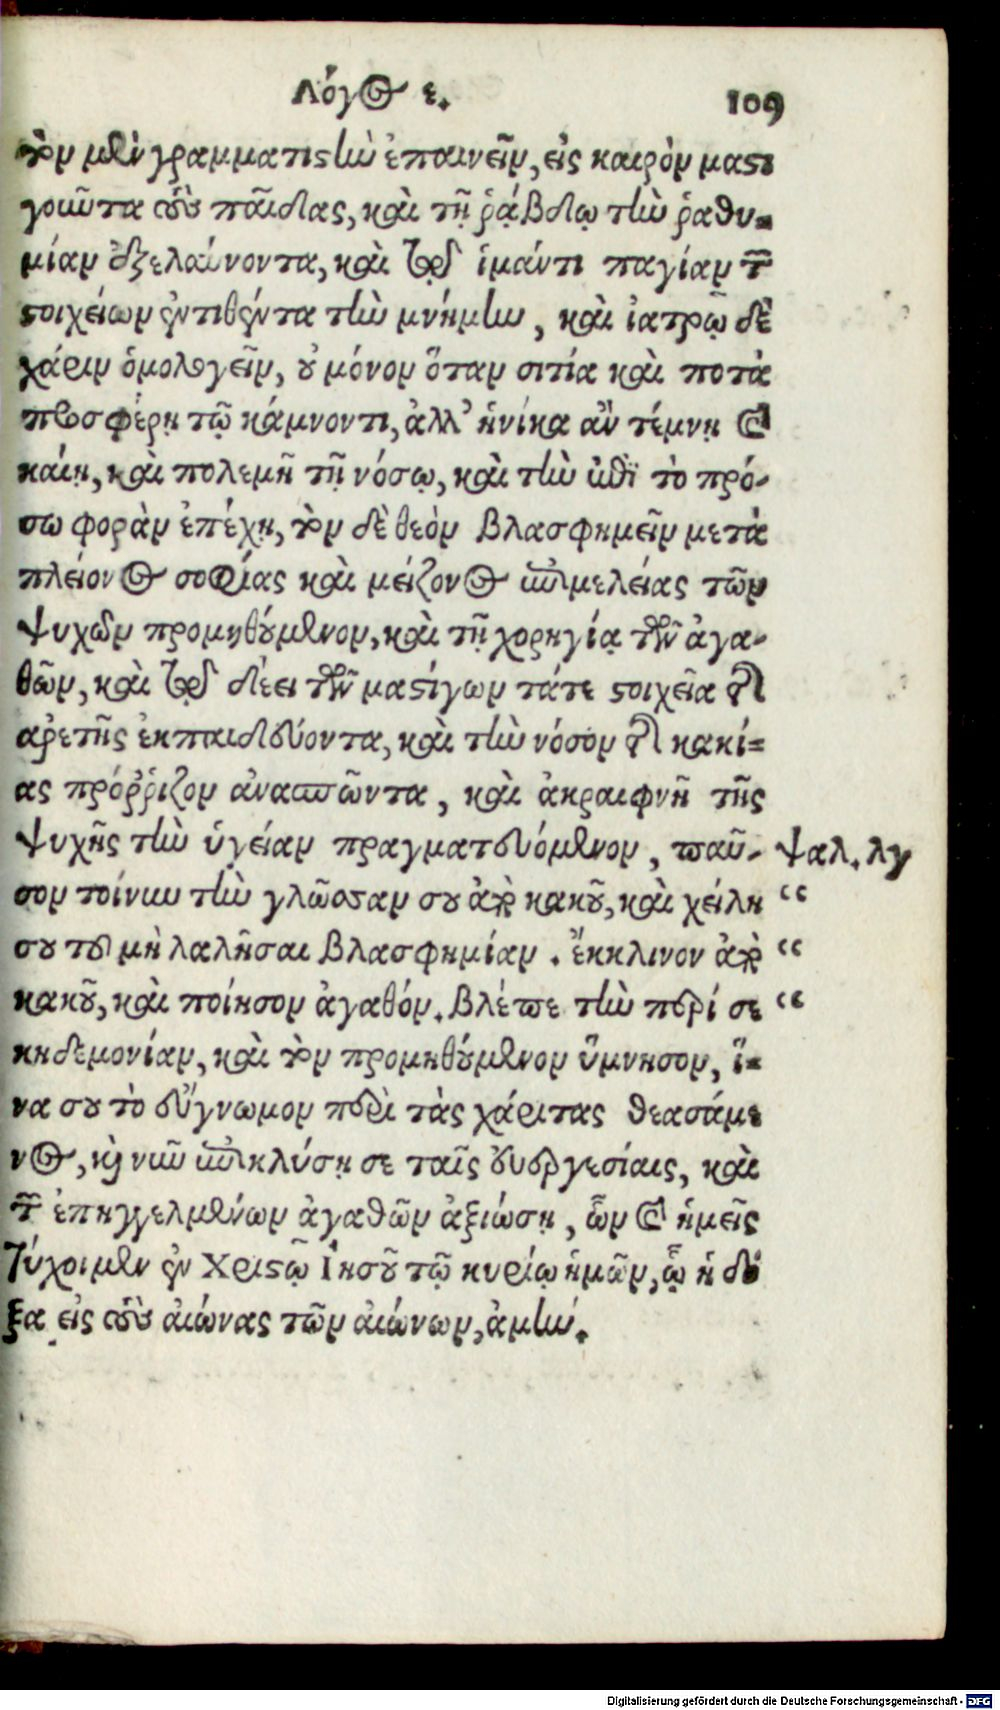 Λόγος ε. 109
τὸν μὲν γραμματιστὴν ἐπαινεῖν, εἰς καιρὸν μαστι
γοῦντα τοὺς παῖδας, καὶ τῇ ῥάβδῳ τὴν ῥαθυ-
μίαν ἐξελαύνοντα, καὶ τῷ ἱμάντι παγίαν τῶν
στοιχείων ἐντιθέντα τὴν μνήμην, καὶ ἰατρῷ δὲ
χάριν ὁμολογεῖν, οὐ μόνον ὅταν σιτία καὶ ποτὰ
προσφέρῃ τῷ κάμνοντι, ἀλλ' ἡνίκα ἂν τέμνῃ καὶ
καίῃ, καὶ πολεμῇ τῇ νόσῳ, καὶ τὴν ἐπὶ τὸ πρό-
σω φορὰν ἐπέχῃ, τὸν δὲ θεὸν βλασφημεῖν μετὰ
πλείονος σοφίας καὶ μείζονος ἐπιμελείας τῶν
ψυχῶν προμηθούμενον, καὶ τῇ χορηγίᾳ τῶν ἀγα-
θῶν, καὶ τῷ δέει τῶν μαστίγων τά τε στοιχεῖα τῆς
ἀρετῆς ἐκπαιδεύοντα, καὶ τὴν νόσον τῆς κακί-
ας πρόῤῥιζον ἀνασπῶντα, καὶ ἀκραιφνῆ τῆς
ψυχῆς τὴν ὑγείαν πραγματευόμενον, παῦ- ψαλ. λγ
σον τοίνυν τὴν γλῶσσαν σου ἀπὸ κακοῦ, καὶ χείλη “
σου τοῦ μὴ λαλῆσαι βλασφημίαν. ἔκκλινον ἀπὸ “
κακοῦ, καὶ ποίησον ἀγαθόν. βλέπε τὴν περί σε “
κηδεμονίαν, καὶ τὸν προμηθούμενον ὕμνησον, ἵ-
να σου τὸ εὔγνωμον περὶ τὰς χάριτας θεασάμε
νος, καὶ νῦν ἐπικλύσῃ σε ταῖς εὐεργεσίαις, καὶ
τῶν ἐπηγγελμένων ἀγαθῶν ἀξιώσῃ, ὧν καὶ ἡμεῖς
τύχοιμεν ἐν Χριστῷ Ἰησοῦ τῷ κυρίῳ ἡμῶν, ᾧ ἡ δό
ξα εἰς τοὺς αἰώνας τῶν αἰώνων, ἀμήν.
Digitalisierung gefördert durch die Deutsche Forschungsgemeinschaft - DFG